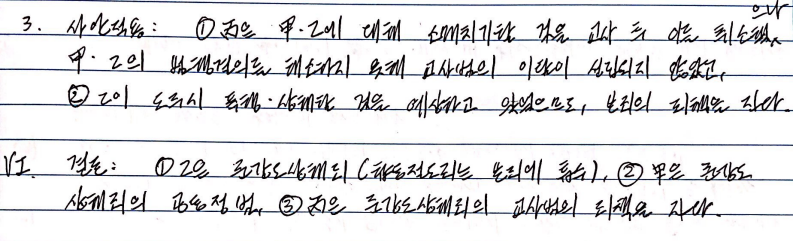 3. 사안적용: ① 丙은 甲·乙에 대해 소매치기할 것을 교사 후 이를 취소했으나
甲·乙의 범행결의를 해소하지 못해 교사범의 이탈이 성립되지 않았고,
② 乙이 도주시 폭행·상해할 것을 예상하고 있었으므로, 본죄의 죄책을 진다.
VI. 결론: ① 乙은 준강도상해죄(합동절도죄는 본죄에 흡수), ② 甲은 준강도
상해죄의 공동정범, ③ 丙은 준강도상해죄의 교사범의 죄책을 진다.